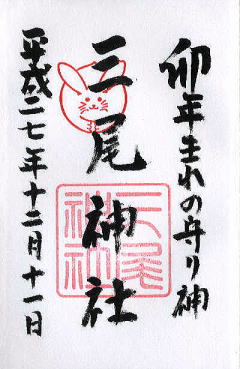 卯年まれの守り神
三尾神社
平成二七年十二月十一日
三尾神社